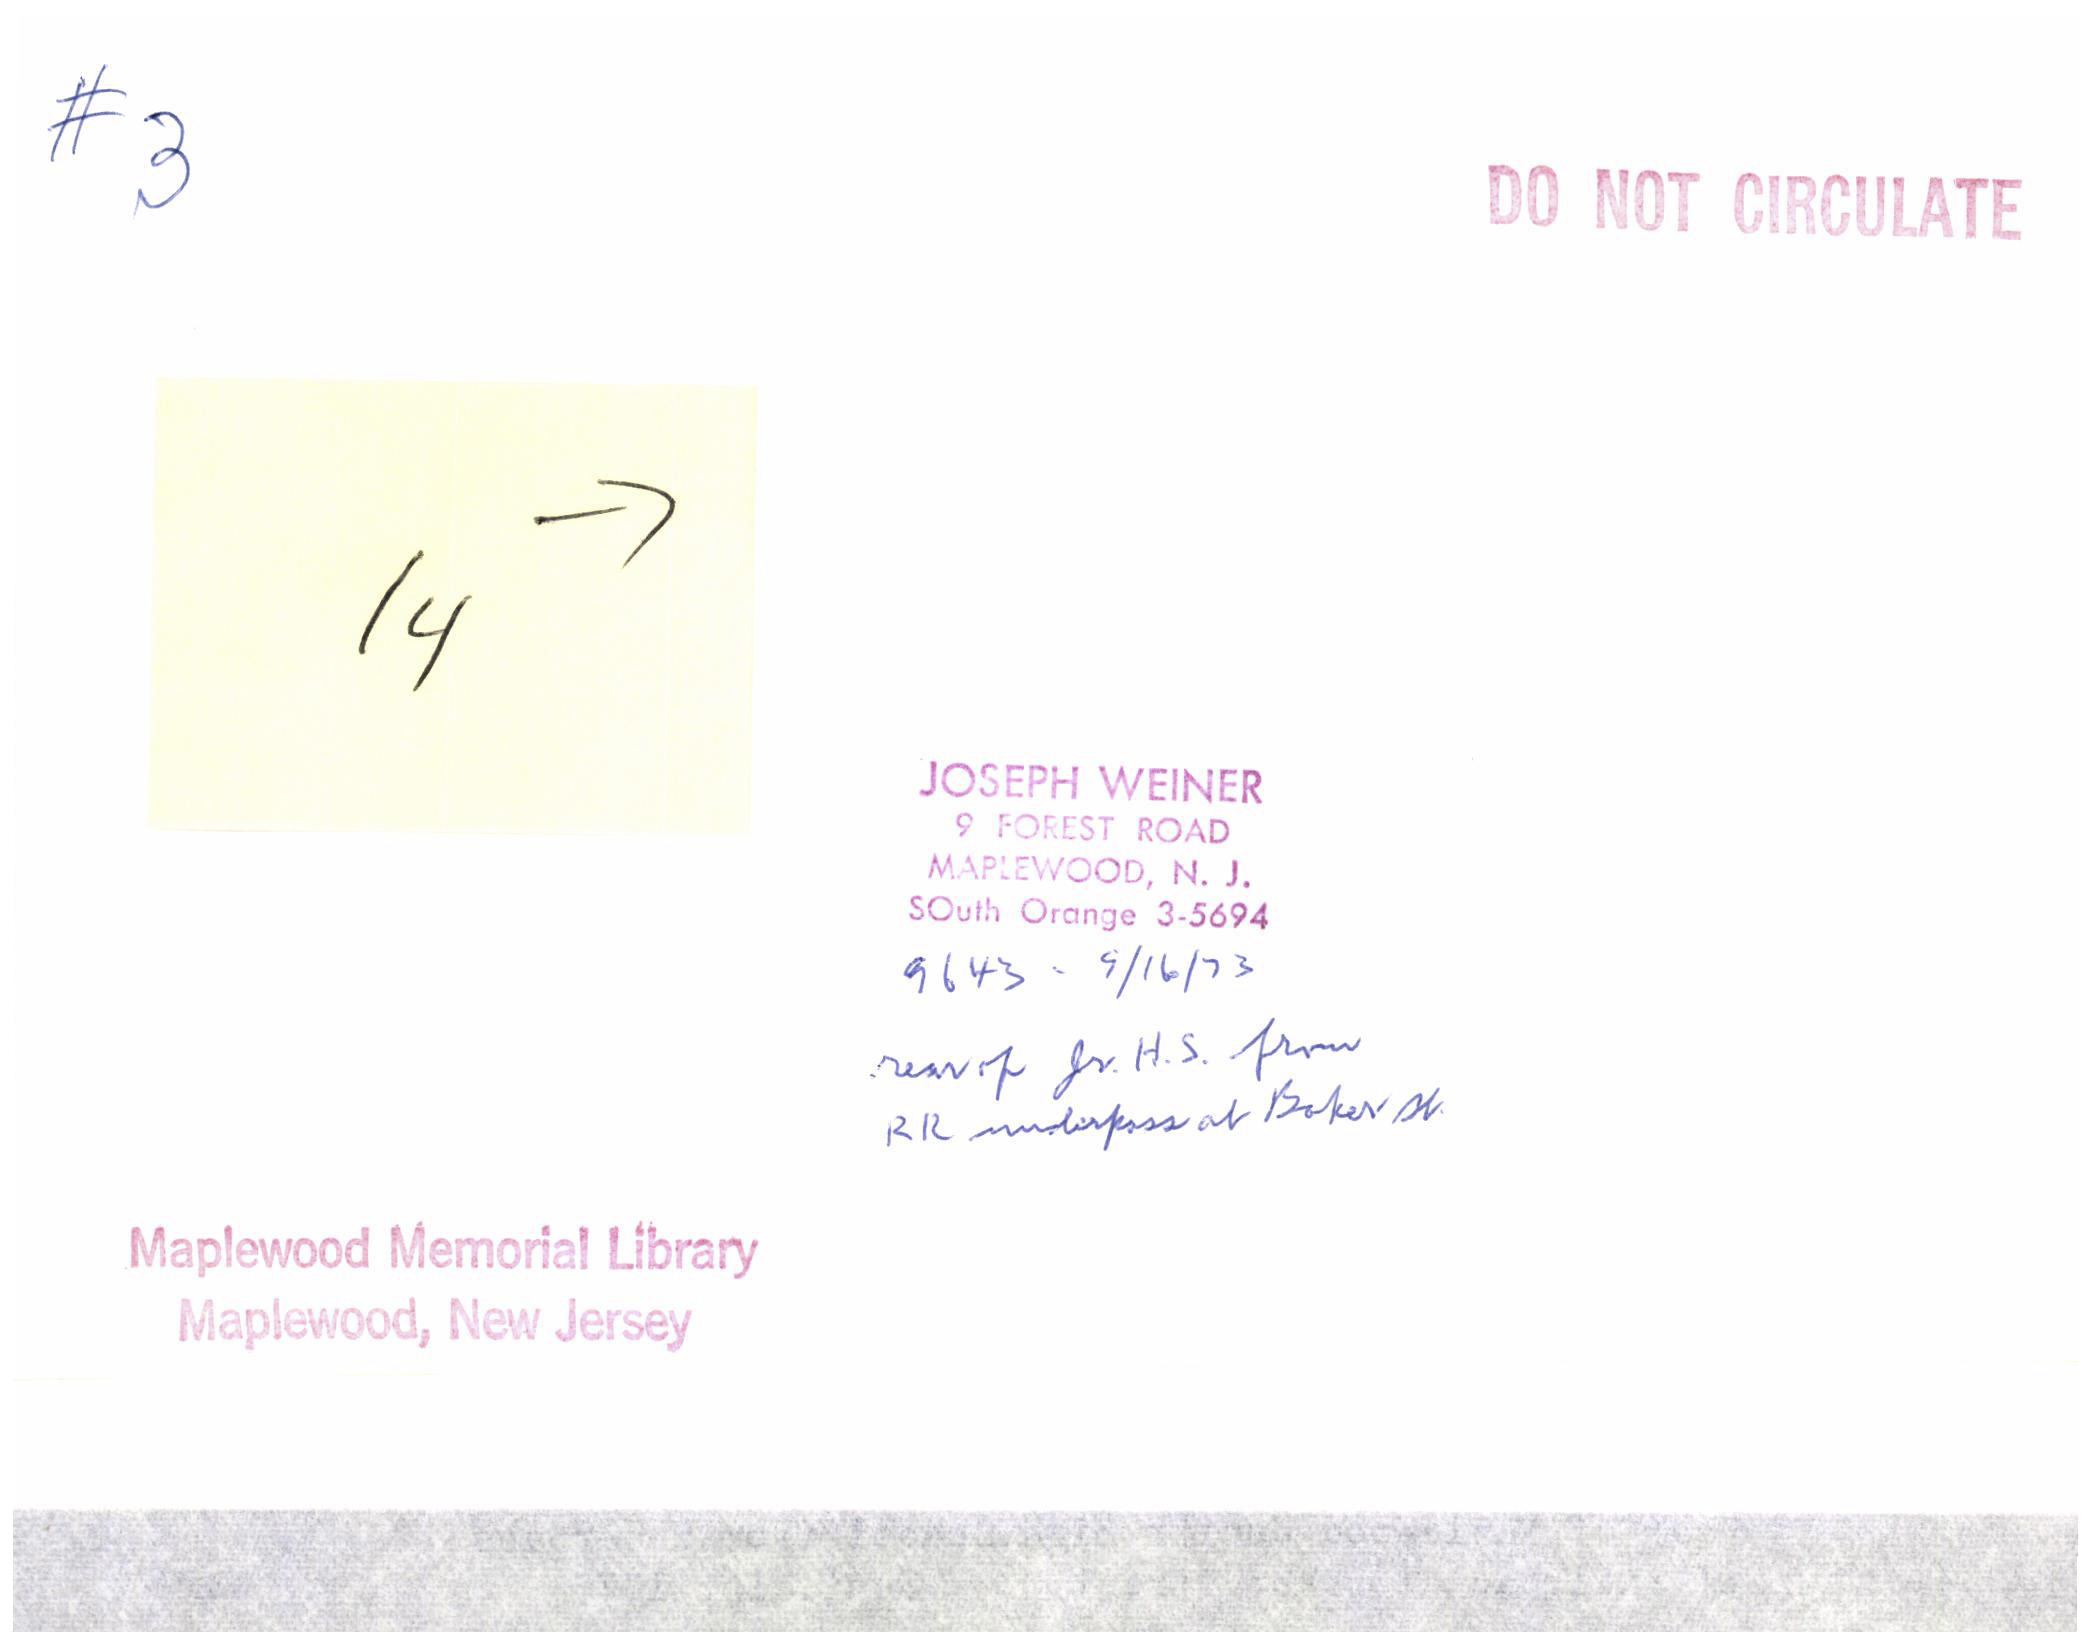 #3
DO NOT CIRCULATE
→
14
JOSEPH WEINER
9 FOREST ROAD
MAPLEWOOD, N. J.
SOuth Orange 3-5694
9643 - 9/16/73
rear of Jr. H.S. from
RR underpass at Baker St.
Maplewood Memorial Library
Maplewood, New Jersey